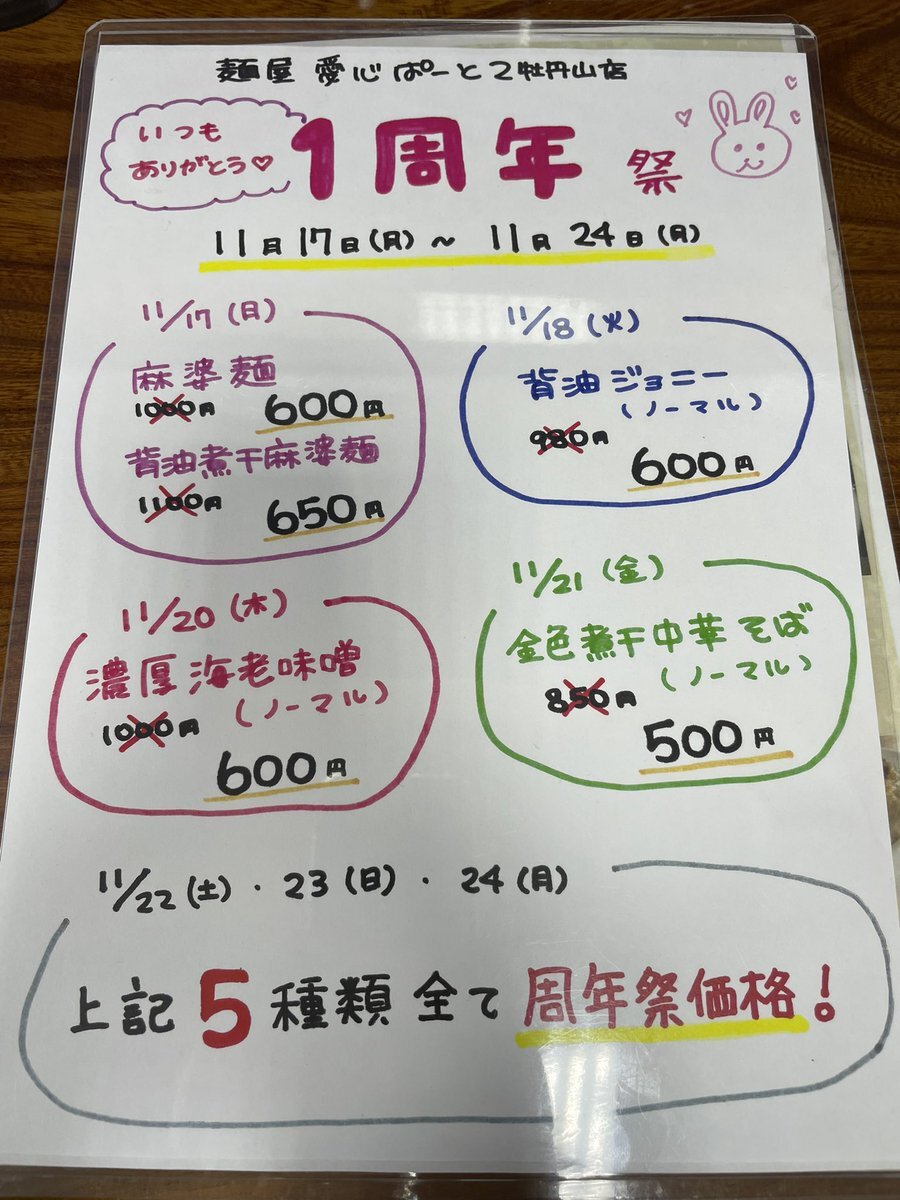 麺屋 愛心ぱーと2牡丹山店
いつも
ありがとう♡
1周年 祭
11月17日(月)~ 11月24日(月)
11/17(月)
麻婆麺
1000円 600円
背油煮干麻婆麺
1100円 650円
11/18(火)
背油ジョニー
(ノーマル)
980円
600円
11/20(木)
濃厚海老味噌
(ノーマル)
1000円
600円
11/21(金)
金色煮干中華そば
(ノーマル)
850円
500円
11/22(土)・23(日)・24(月)
上記5種類全て周年祭価格!